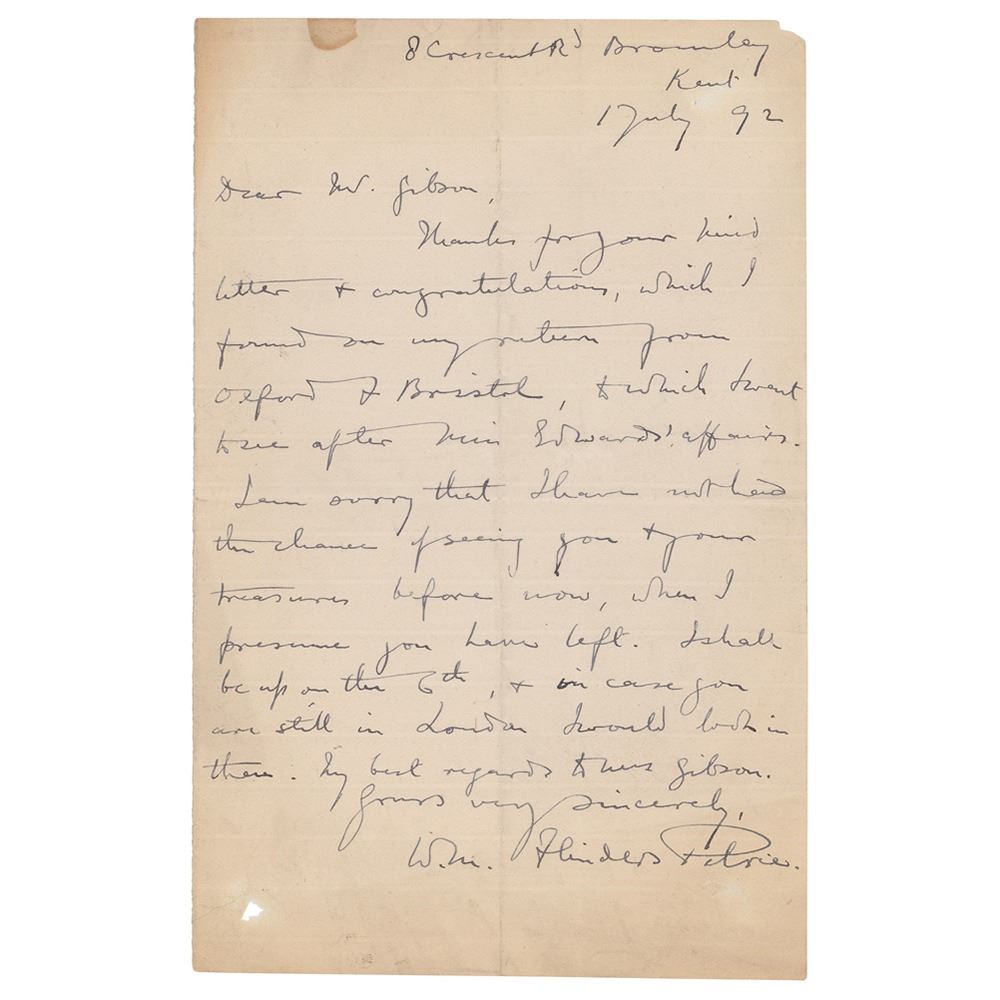 8 Crescent Rd Bromley
Kent
1 July 92
Dear Mr. Gibson,
Thanks for your kind
letter & congratulations, which I
found on my return from
Oxford & Bristol, to which I went
to see after Miss Edwards' affairs.
I am sorry that I have not had
the chance of seeing you & your
treasures before now, when I
presume you have left. I shall
be up on the 6th, & in case you
are still in London I would look in
then. My best regards to Mrs Gibson.
Yours very sincerely,
W.M. Flinders Petrie.